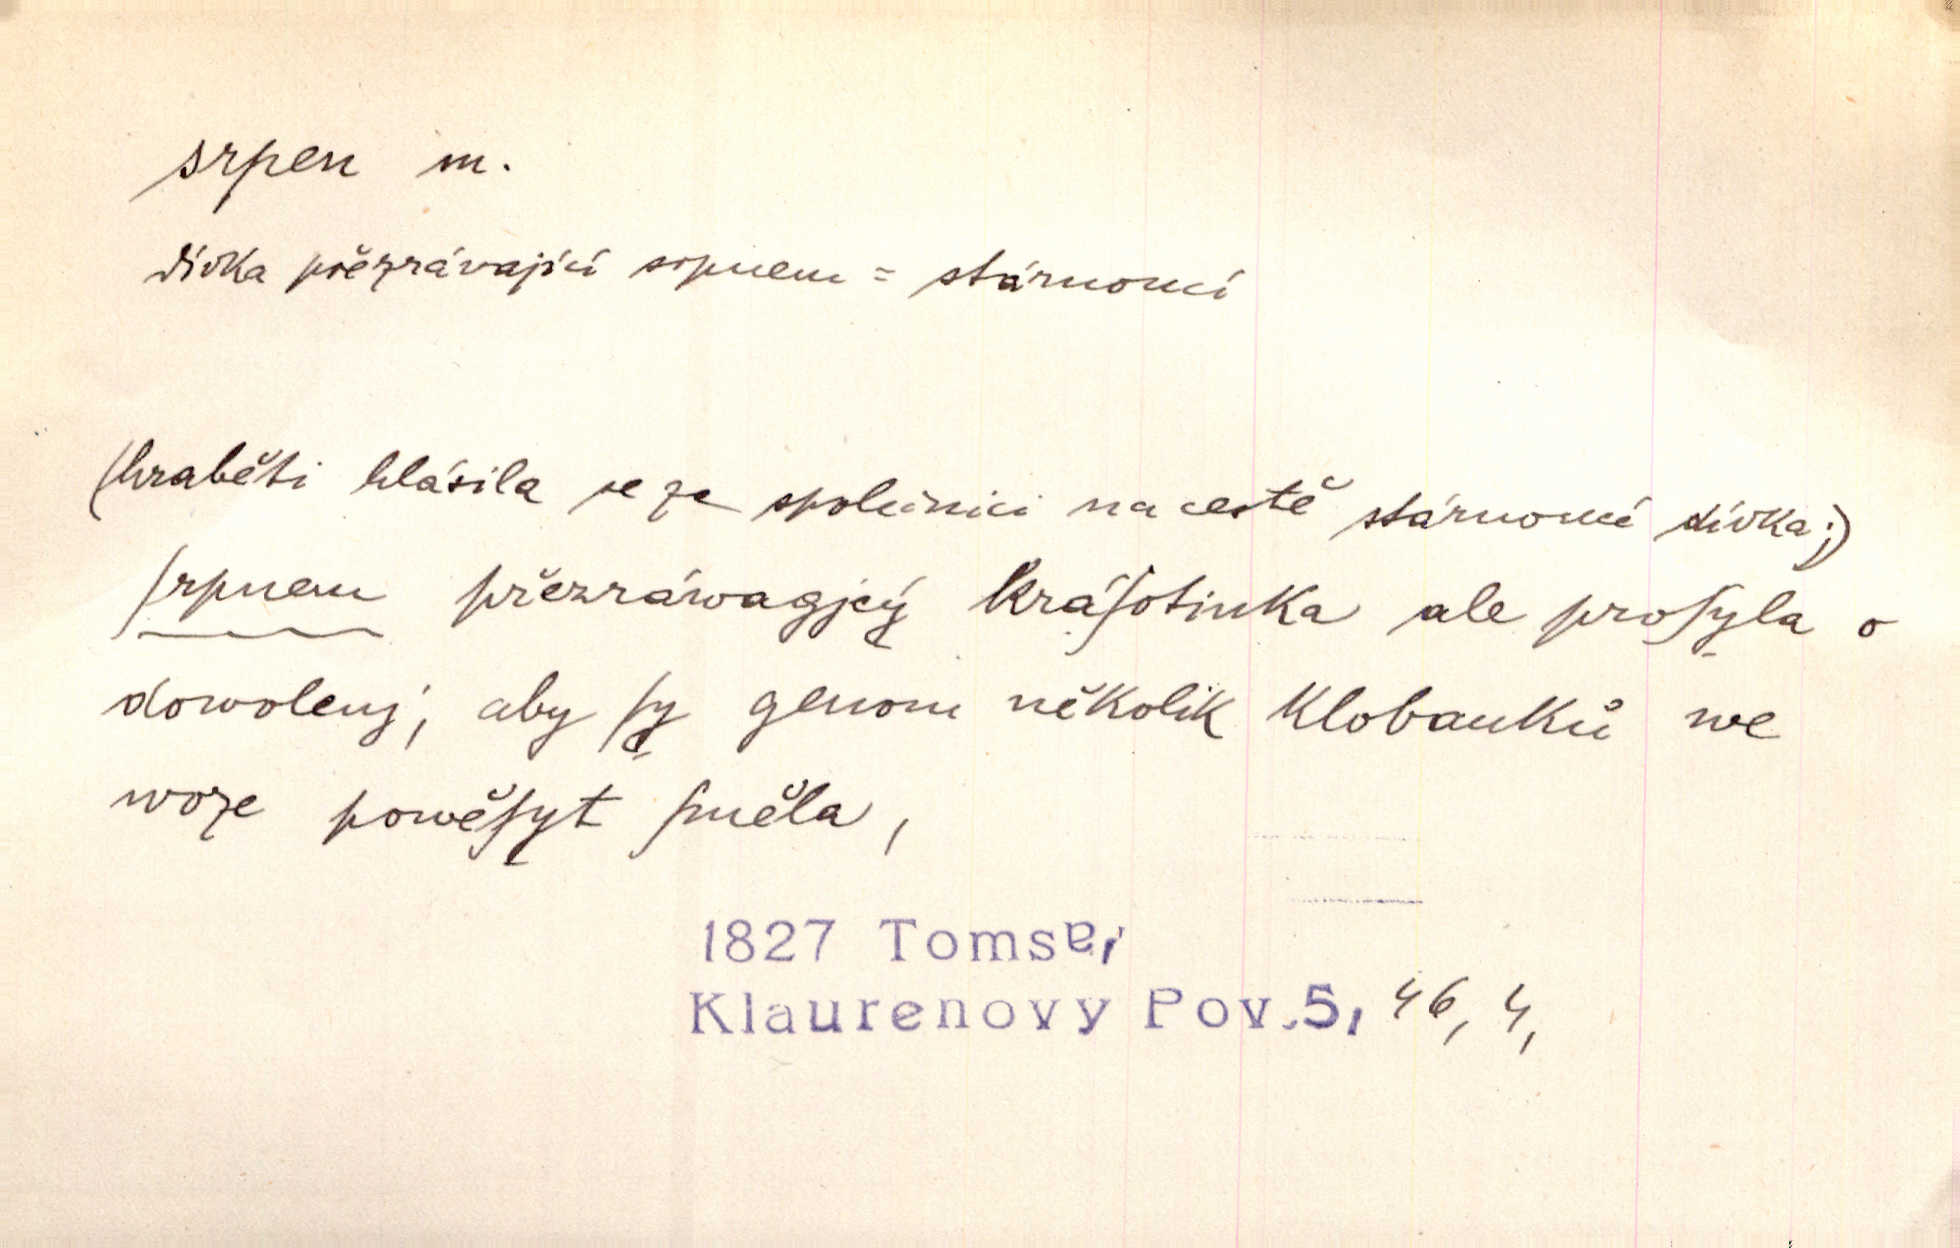 srpen m.
dívka přezrávající srpnem = stárnoucí
(hraběti hlásila se za společnici na cestě stárnoucí dívka;)
ſrpnem přezráwagjcý kráſotinka ale proſyla o
dowolenj, aby ſy genom několik klobauků we
woze powěſyt ſměla,
1827 Tomsa,
Klaurenovy Pov.5, 46, 4,